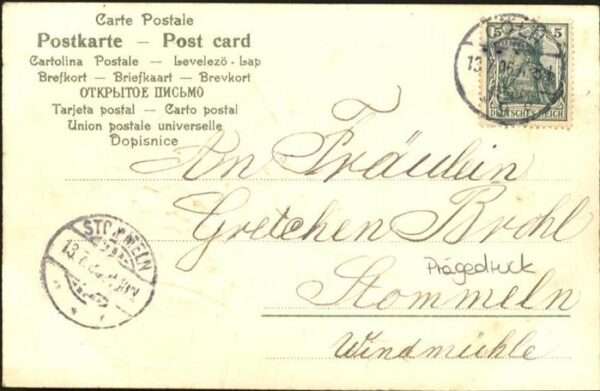 Carte Postale
Postkarte — Post card
Cartolina Postale — Levelező-Lap
Brefkort — Briefkaart — Brevkort
ОТКРЫТОЕ ПИСЬМО
Tarjeta postal — Carto postal
Union postale universelle
Dopisnice
5 5
DEUTSCHES REICH
An Fräulein
Gretchen Brohl
Prägedruck
Stommeln
Windmühle
STOMMELN